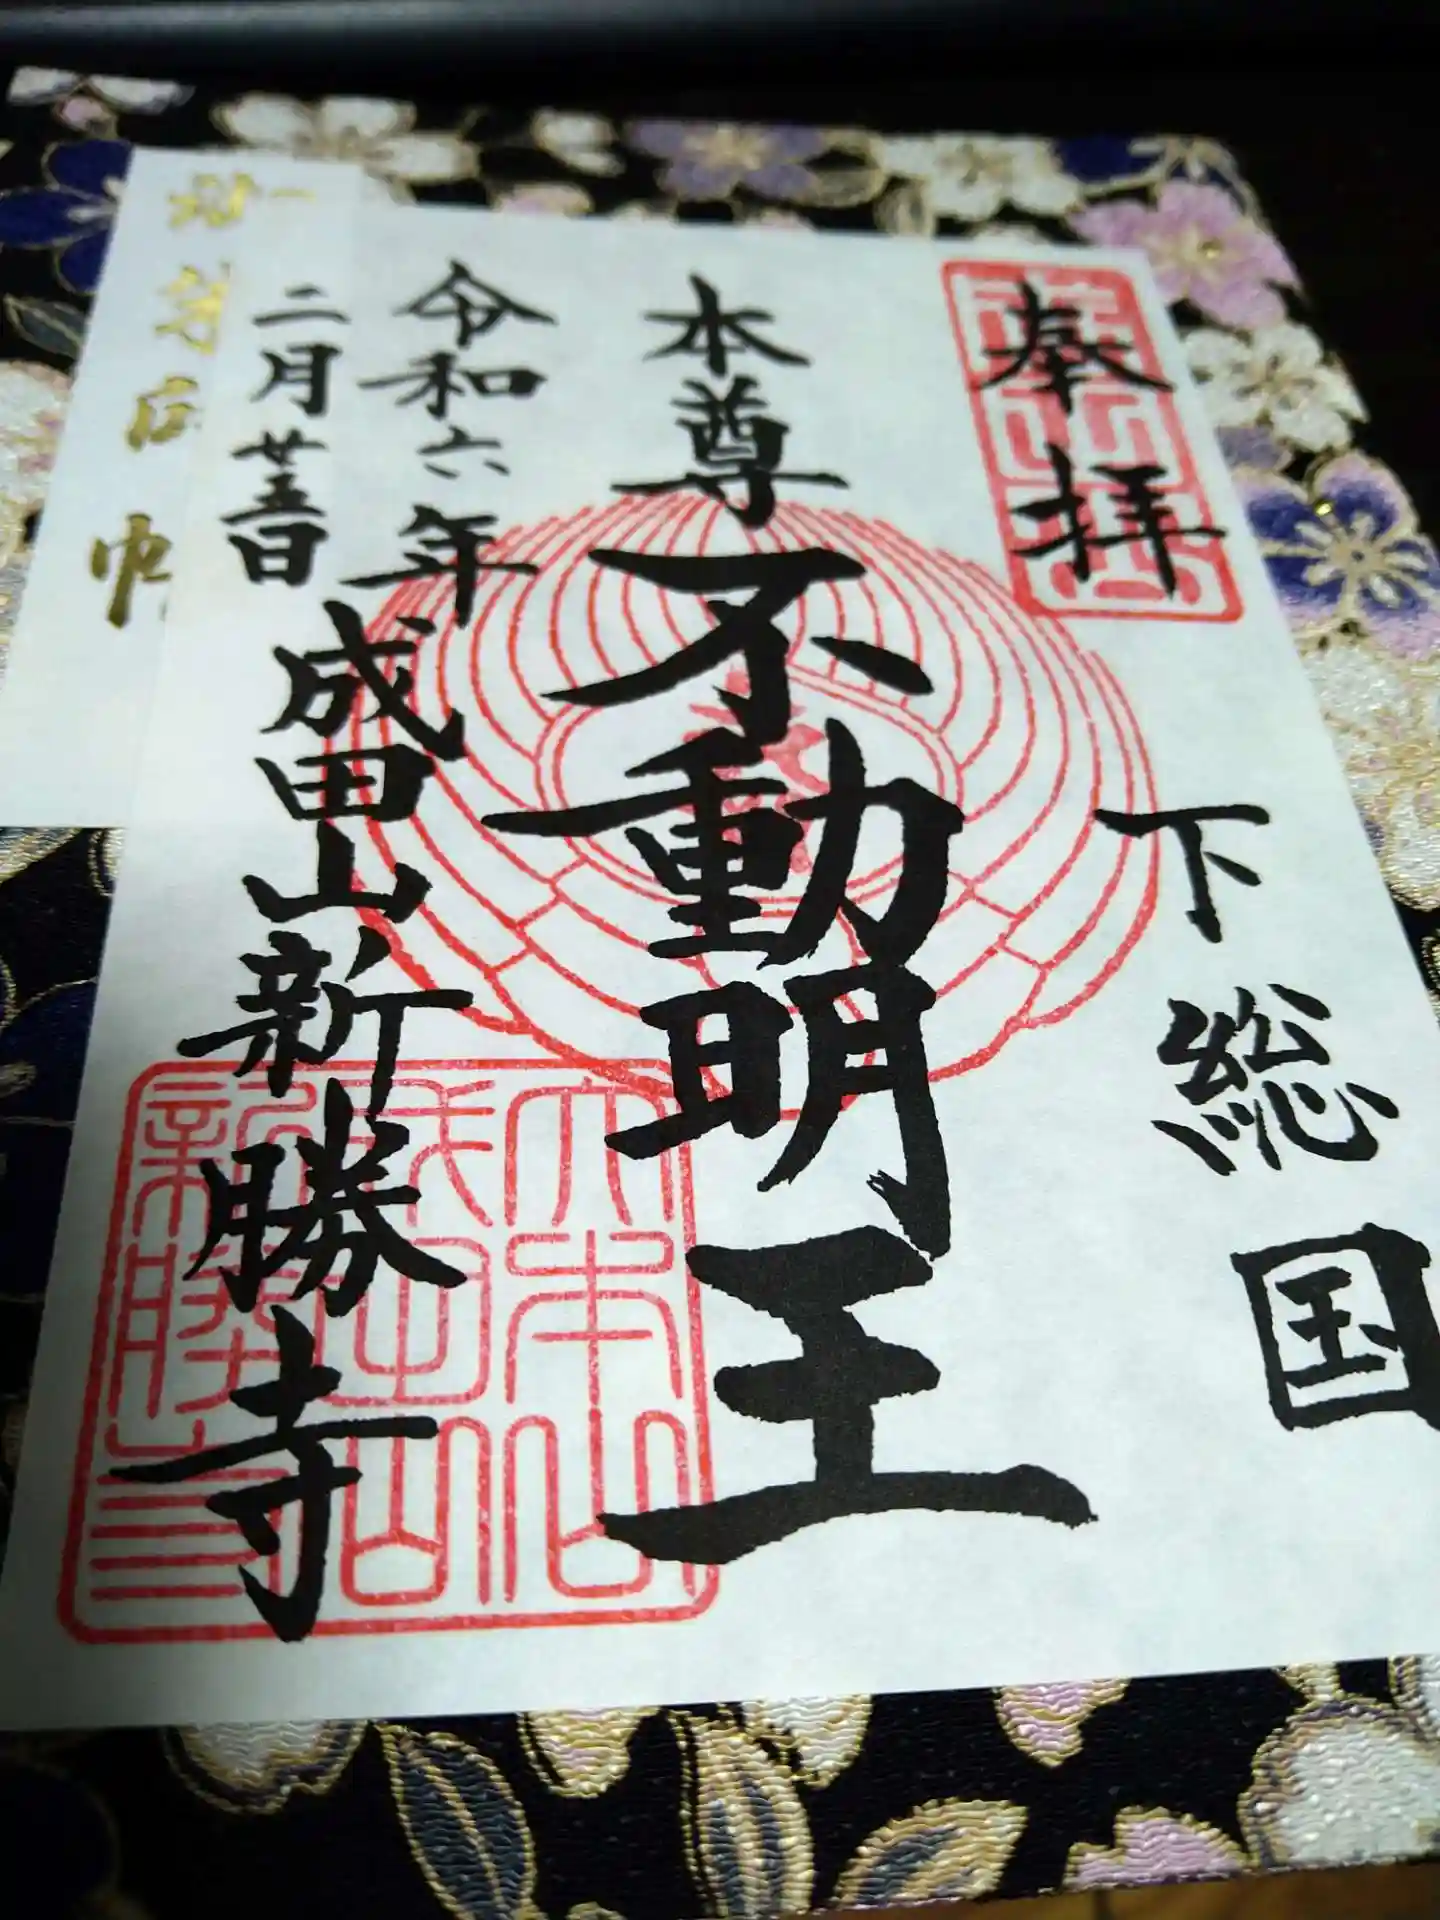 奉拝
下総国
本尊
不動明王
令和六年
二月廿五日
成田山新勝寺
大本山成田山新勝寺